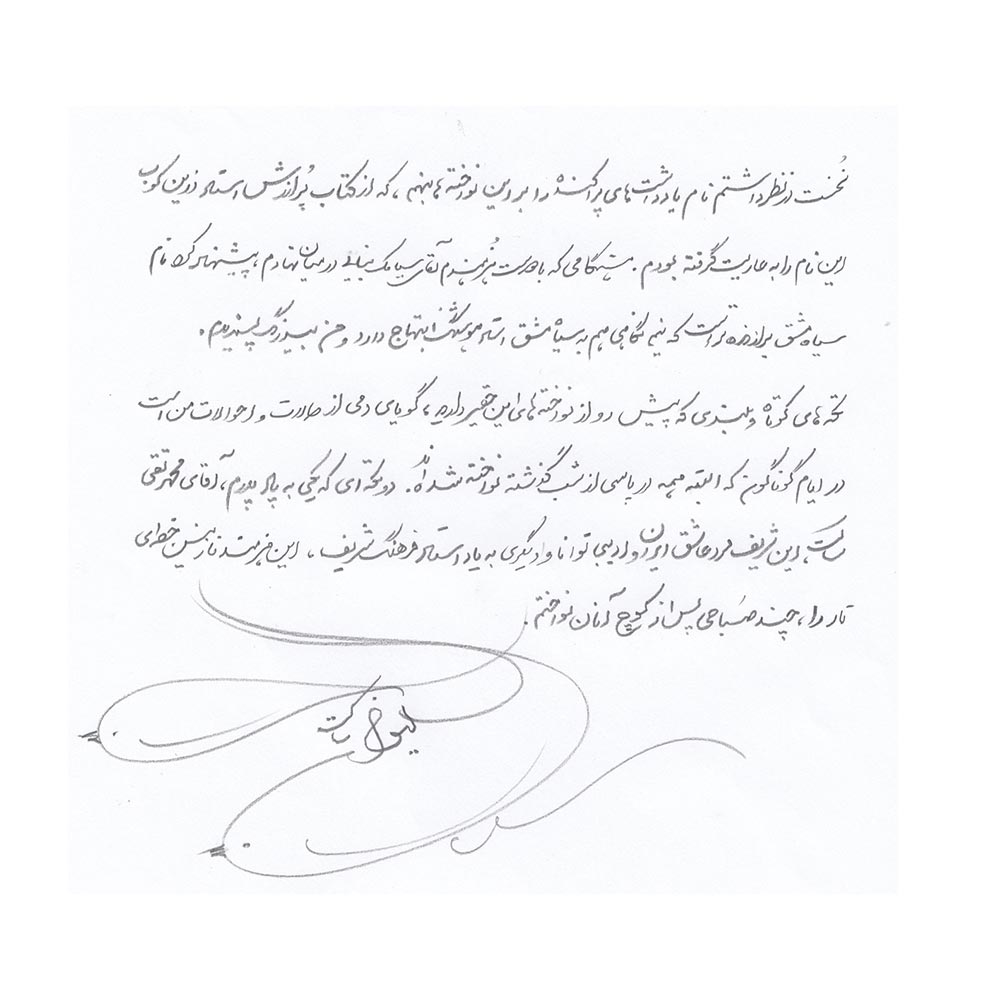 نُخست در نظر داشتم نام یادداشت‌های پراکنده را بر این نواخته‌ها بنهم، که از کتاب پُر ارزش استاد زرین کوب
این نام را به عاریت گرفته بودم. هنگامی که با دوست هُنرمندم آقای سیامک بنایی در میان نهادم، پیشنهاد کرد نام
سیاه مشق برازنده‌تر است که نیم نگاهی هم به سیاه مشق استاد هوشنگ ابتهاج دارد و من نیز پسندیدم.
تکه‌های کوتاه و بلندی که پیش رو از نواخته‌های این حقیر دارید، گویای دمی از حالات و احوالات من است
در ایام گوناگون که البته همه در پاسی از شب گذشته نواخته شده‌اند. دو تکه‌ای که یکی به یاد پدرم، آقای محمد تقی
این شریف مرد عاشق ایران و ادیبی توانا و دیگری به یاد استاد فرهنگ شریف، این هنرمند نازنین خطه‌ی
تار را، چند صَباحی پس از کوچ آنان نواختم.